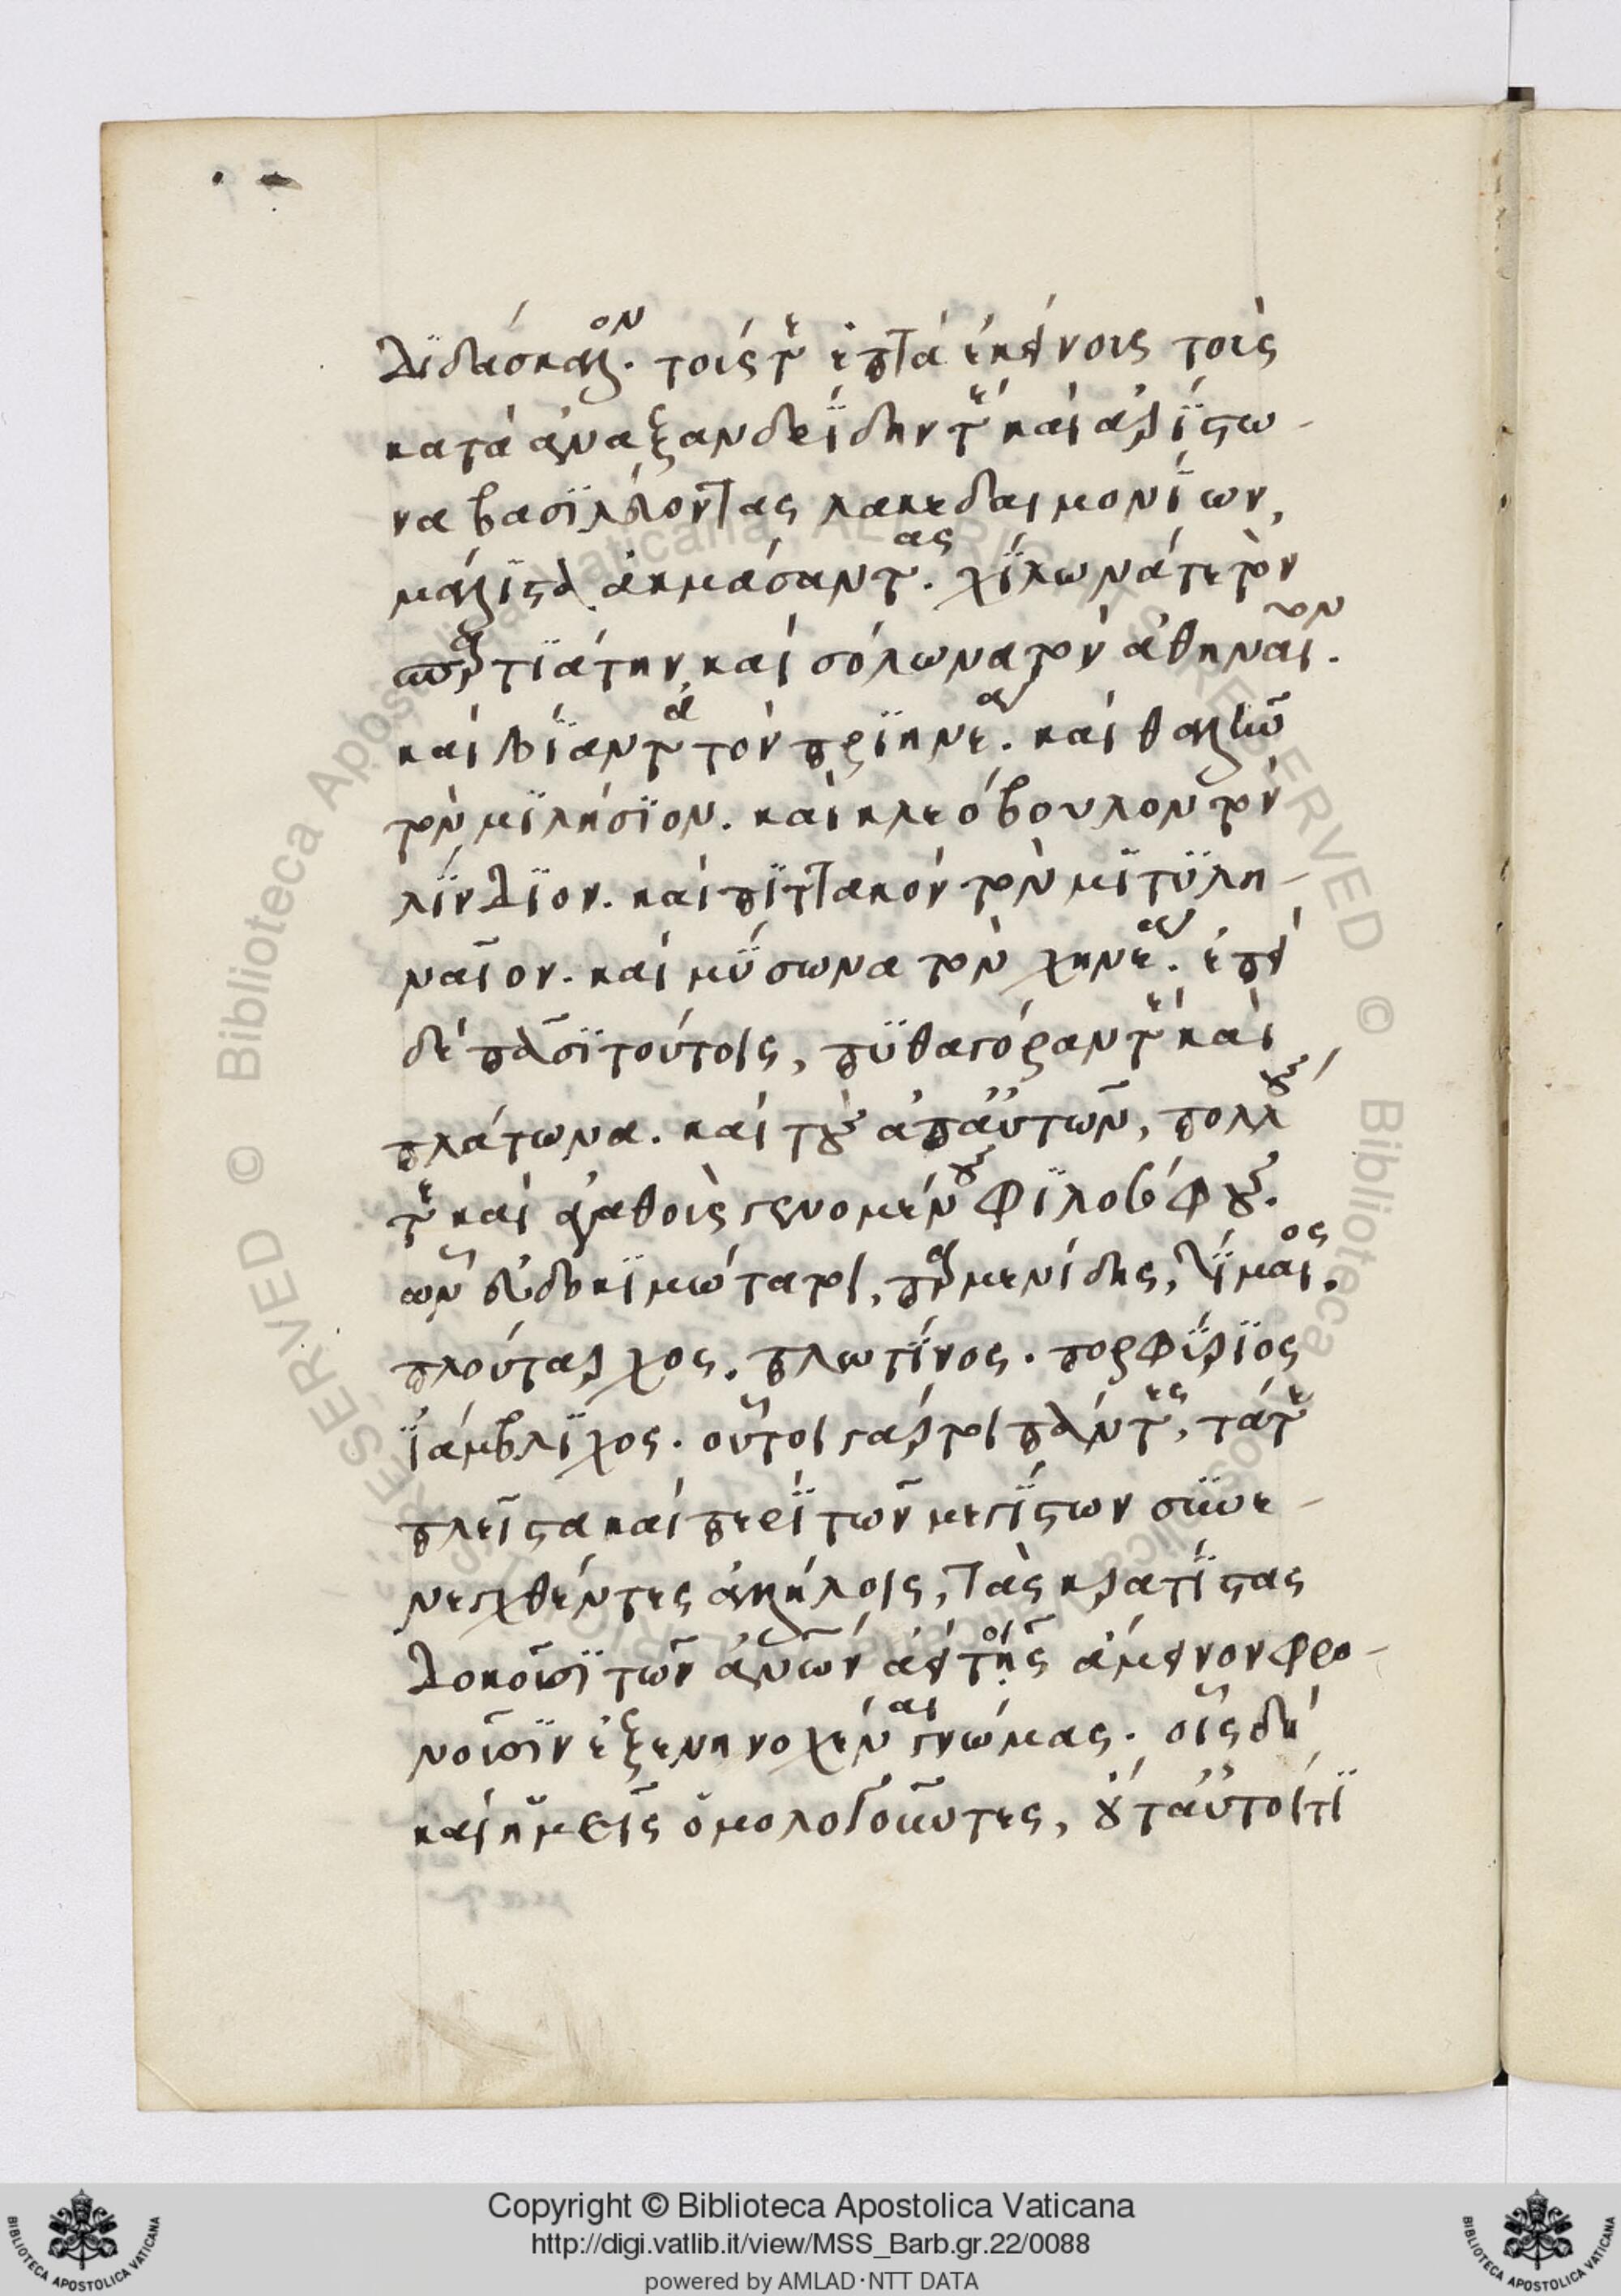 διδάσκαλον. τούς τε ἑπτὰ ἐκείνους τοὺς
κατὰ ἀναξανδρίδην τὲ καὶ ἀρίστω-
να βασιλεύοντας λακεδαιμονίων,
μάλιστα ἀκμάσαντας. χίλωνά τε τὸν
σπαρτιάτην καὶ σόλωνα τὸν ἀθηναῖον.
καὶ βίαντα τὸν πριηνέα. καὶ θαλῆν
τὸν μιλήσιον. καὶ κλεόβουλον τὸν
λίνδιον. καὶ πιττακὸν τὸν μιτυλη-
ναῖον. καὶ μύσωνα τὸν χηνέα. ἐπὶ
δὲ πᾶσι τούτοις, πυθαγόραν τὲ καὶ
πλάτωνα. καὶ τοὺς ἀπαυτῶν, πολλούς
τε καὶ ἀγαθοὺς γενομένους φιλοσόφους.
ὧν εὐδοκιμώτατοι, παρμενίδης, τίμαιος.
πλούταρχος. πλωτίνος. πορφύριος
ἰάμβλιχος. οὗτοι γάρ τοι πάντες, τά τε
πλεῖστα καὶ περὶ τῶν μεγίστων συνε-
νεχθέντες ἀλλήλοις, τὰς κρατίστας
δοκοῦσι τῶν ἀνῶν ἀεὶ τοῖς ἄμεινον φρο-
νοῦσιν ἐξενηνοχέναι γνώμας. οἷς δὴ
καὶ ἡμεῖς ὁμολογοῦντες, οὔταὐτοί τι
Copyright © Biblioteca Apostolica Vaticana
http://digi.vatlib.it/view/MSS_Barb.gr.22/0088
powered by AMLAD·NTT DATA